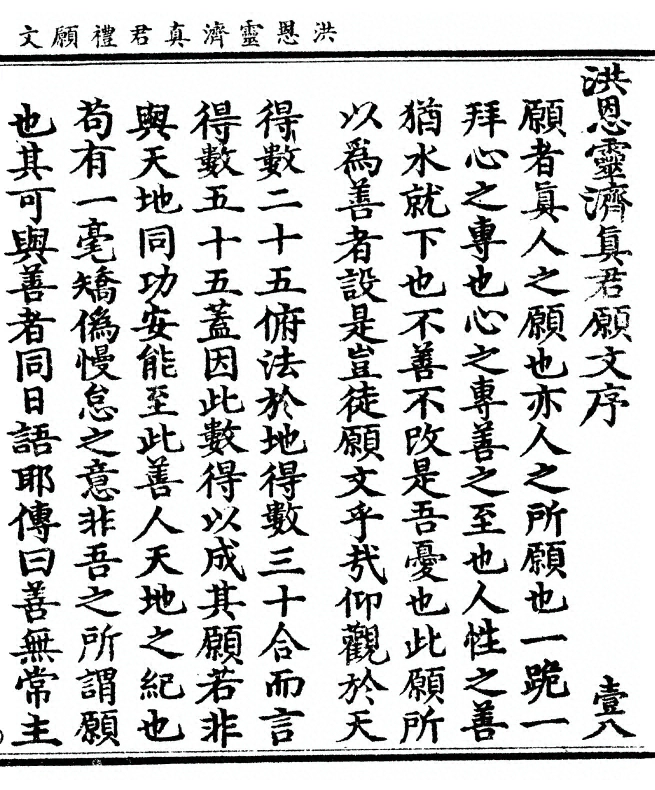 洪恩靈濟真君禮願文
洪恩靈濟真君願文序
壹八
願者真人之願也亦人之所願也一跪一
拜心之專也心之專善之至也人性之善
猶水就下也不善不改是吾憂也此願所
以爲善者設是豈徒願文乎哉仰觀於天
得數二十五俯法於地得數三十合而言
得數五十五蓋因此數得以成其願若非
與天地同功安能至此善人天地之紀也
苟有一毫矯僞慢怠之意非吾之所謂願
也其可與善者同日語耶傳曰善無常主